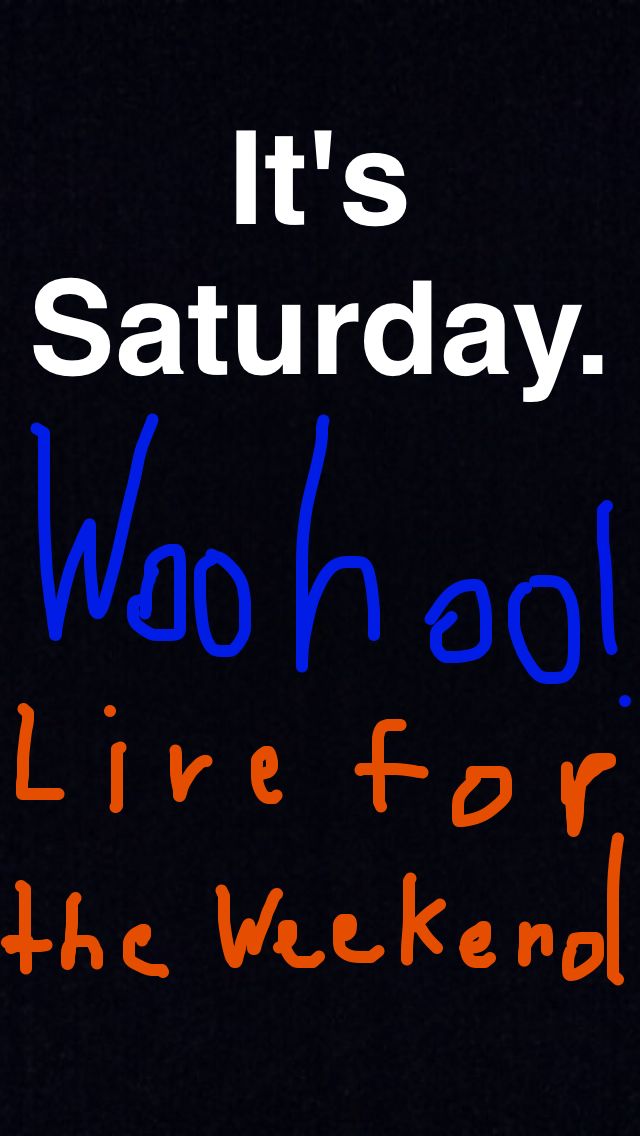 It's
Saturday.
Woohoo!
Live for
the Weekend